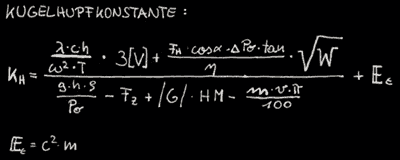 KUGELHUPFKONSTANTE:
K_H = (((λ·c·h)/(ω²·T)) · 3[V] + ((F_H·cosα·ΔP_σ·tan)/η) · √W) / (((g·h·ρ)/P_σ) - F_z + /G/·HM - ((m·v·π)/100)) + E_ε
E_ε = c²·m